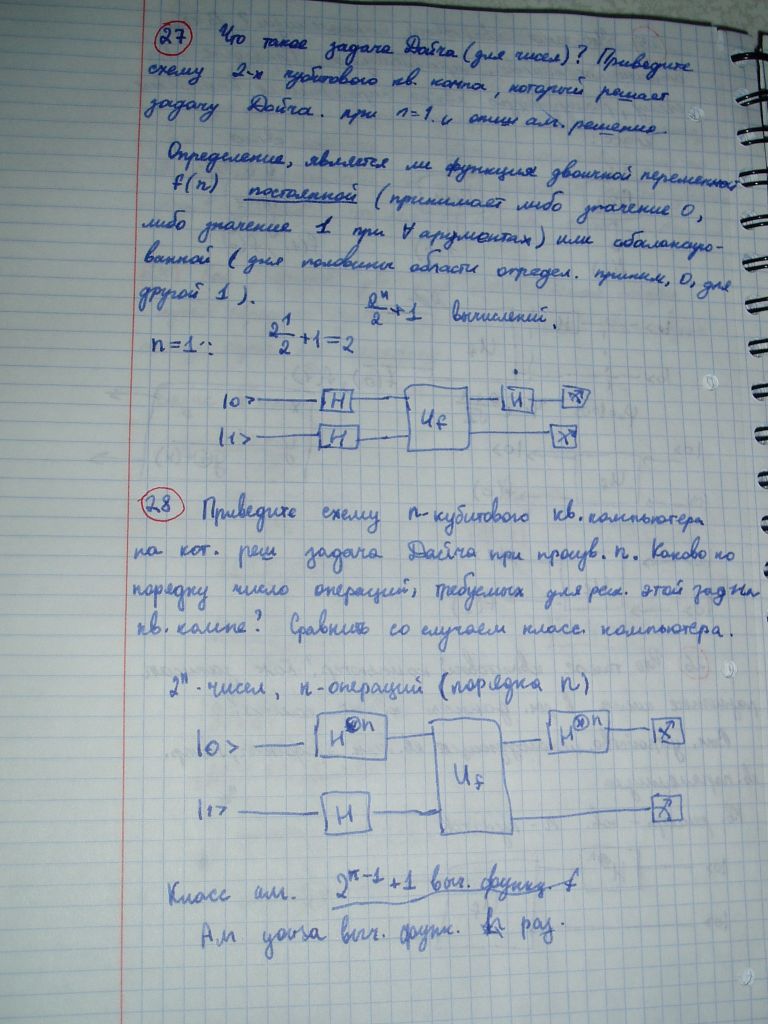 27 Что такое задача Дойча (для чисел)? Приведите
схему 2-х кубитового кв. компа, который решает
задачу Дойча. при n=1. и опиши алг. решение.
Определение, является ли функция двоичной переменной
f(n) постоянной (принимает либо значение 0,
либо значение 1 при ∀ аргументах) или сбалансиро-
ванной (для половины области определ.приним. 0, для
другой 1).
2ⁿ/2 + 1 вычислений.
n=1: 2¹/2 + 1 = 2
|0> H H
U_f
|1> H
28 Приведите схему n-кубитового кв. компьютера
на кот. реш задача Дойча при произв. n. Каково по
порядку число операций, требуемых для реш. этой зад на
кв. компе? Сравнить со случаем класс. компьютера.
2ⁿ - чисел, n-операций (порядка n)
|0> H⊗n H⊗n
U_f
|1> H
Класс алг. 2ⁿ⁻¹+1 выч. функц. f
Ал Дойча выч. функ. раз.